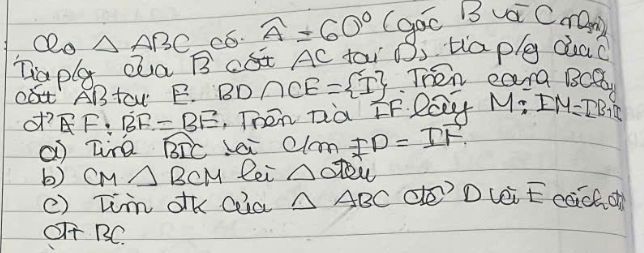 Cho △ ABC có Â = 60° (góc B và C nhọn),
Tia p/g của B̂ cắt AC tại D, tia p/g của C
cắt AB tại E. BD ∩ CE = {I}. Trên cạnh BC lấy
đ' F: BF = BE. Trên tia IF lấy M: IM = IB + IC
a) Tính BIC và C/m ID = IF.
b) CM △ BCM là △ đều
c) Tìm đk của △ ABC để D và E cách đ
đt BC.